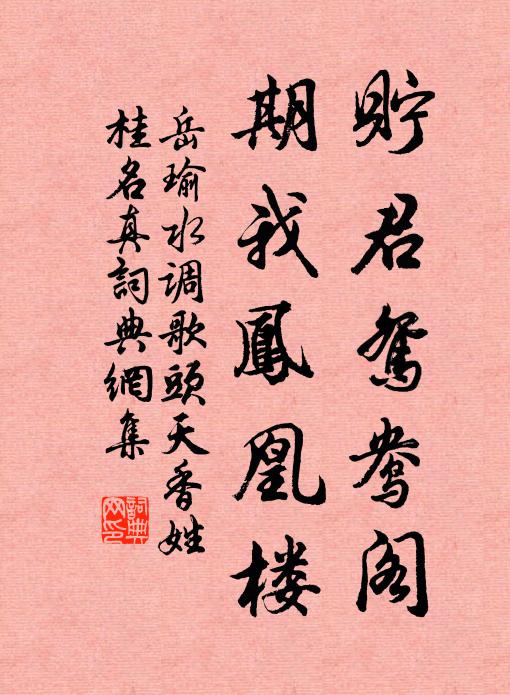 貯君鴛鴦閣
期我鳳凰楼
岳瑜水调歌頭天香姓
桂名真詞典網集
詞典
网印